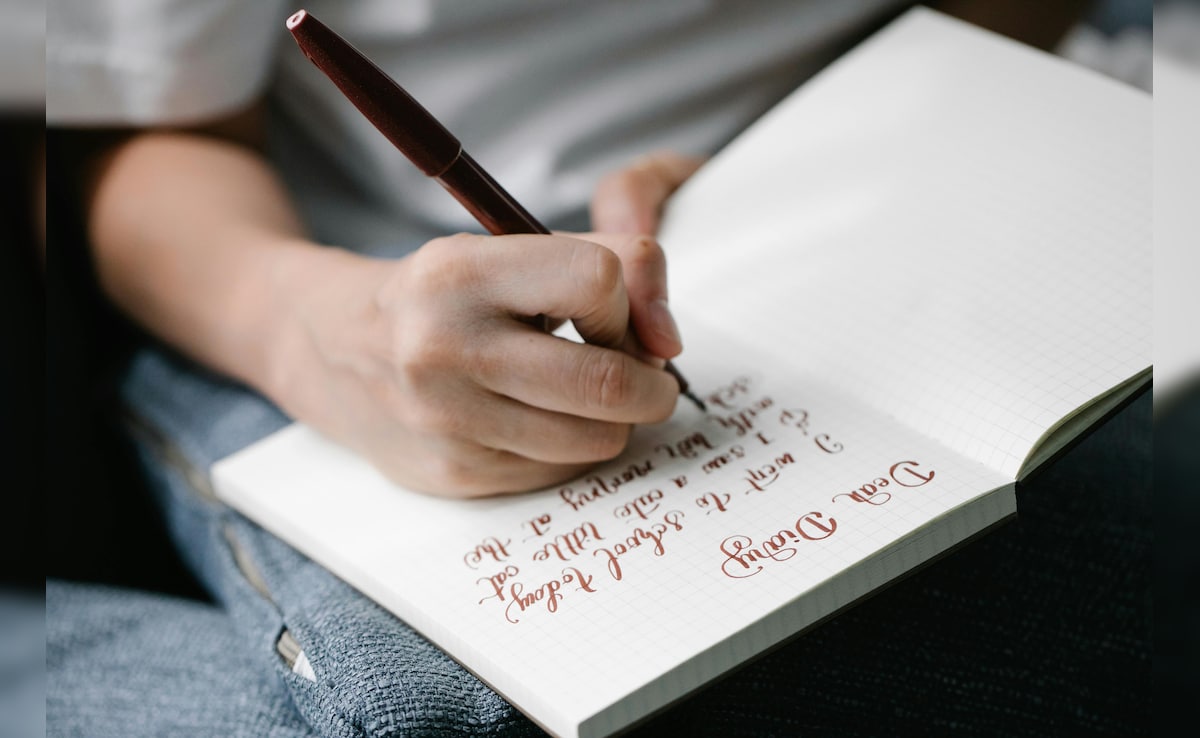 Dear Diary
I went to school today
& I saw a cute little cat
at the
sch